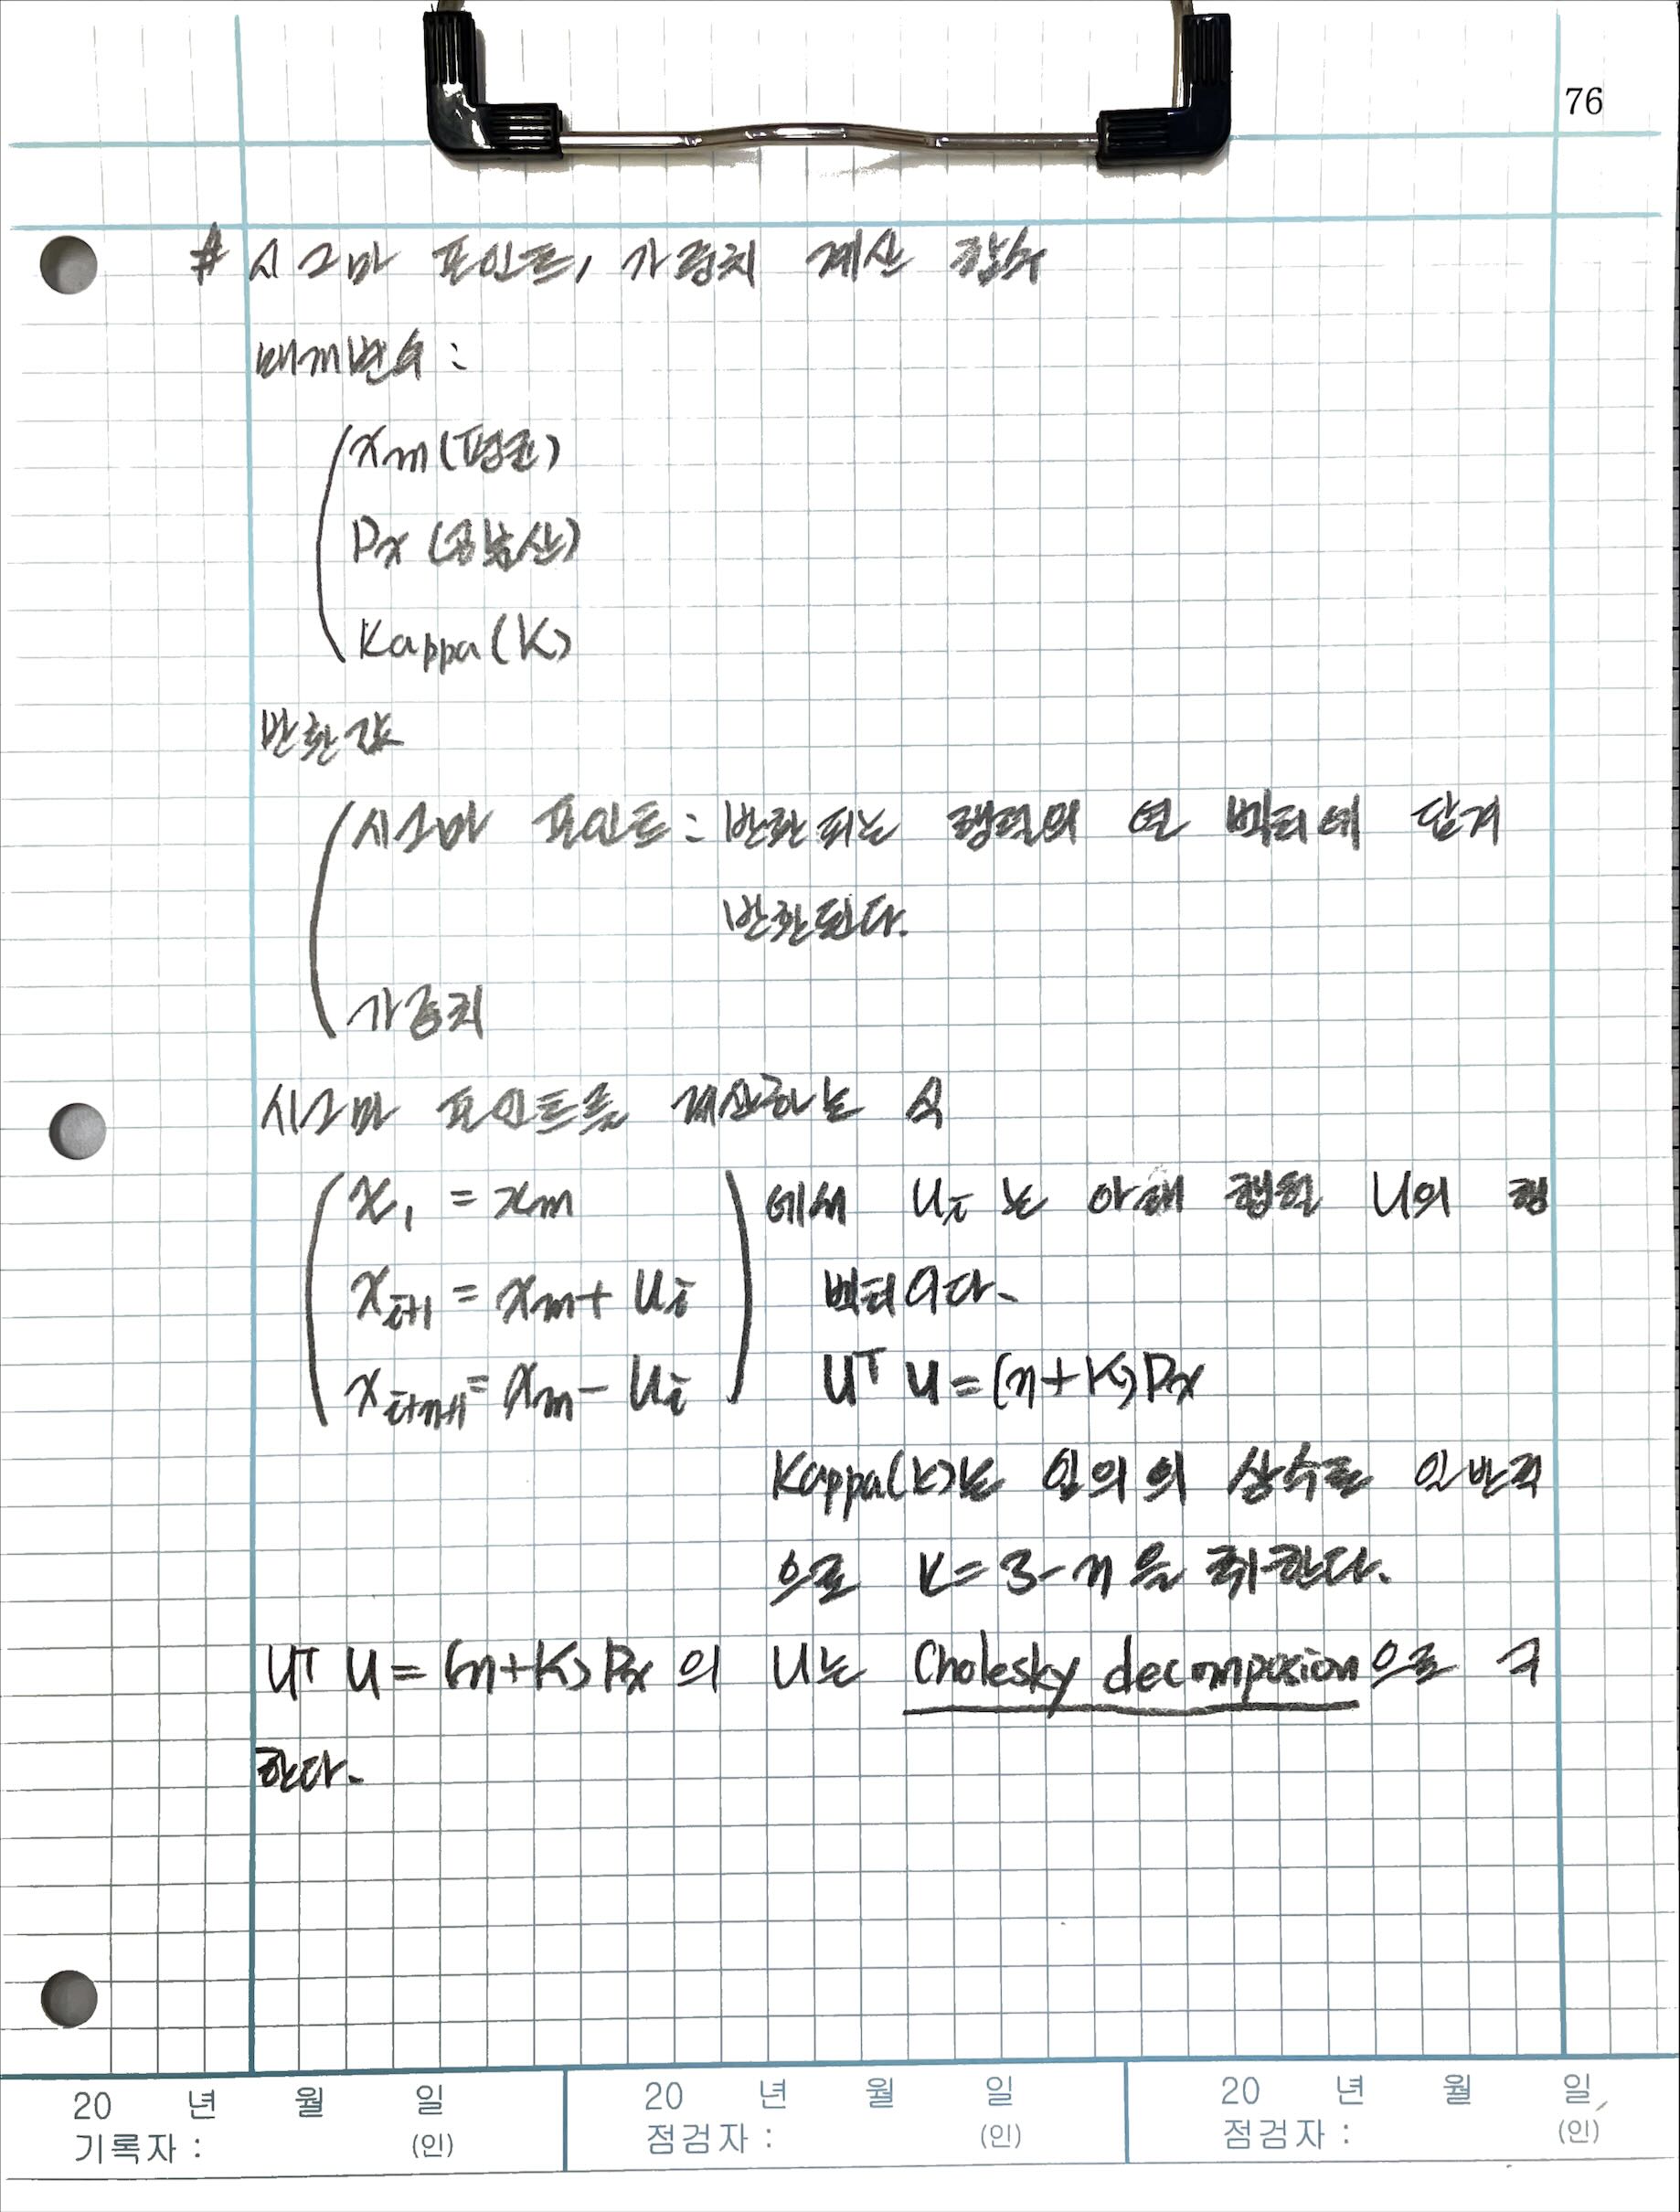 76
# 시그마 포인트, 가중치 계산 함수
매개변수 :
xm (평균)
Px (공분산)
Kappa (K)
반환값
시그마 포인트 : 반환되는 행렬의 열 벡터에 담겨
반환된다.
가중치
시그마 포인트를 계산하는 식
x₁ = xm 에서 uᵢ는 아래 행렬 U의 행
xᵢ₊₁ = xm + uᵢ 벡터이다.
xᵢ₊ₙ₊₁ = xm - uᵢ Uᵀ U = (n+K)Px
Kappa(K)는 임의의 상수로 일반적
으로 K = 3-n을 취한다.
Uᵀ U = (n+K)Px 의 U는 Cholesky decomposion으로 구
한다.
20 년 월 일 20 년 월 일 20 년 월 일
기록자 : (인) 점검자 : (인) 점검자 : (인)